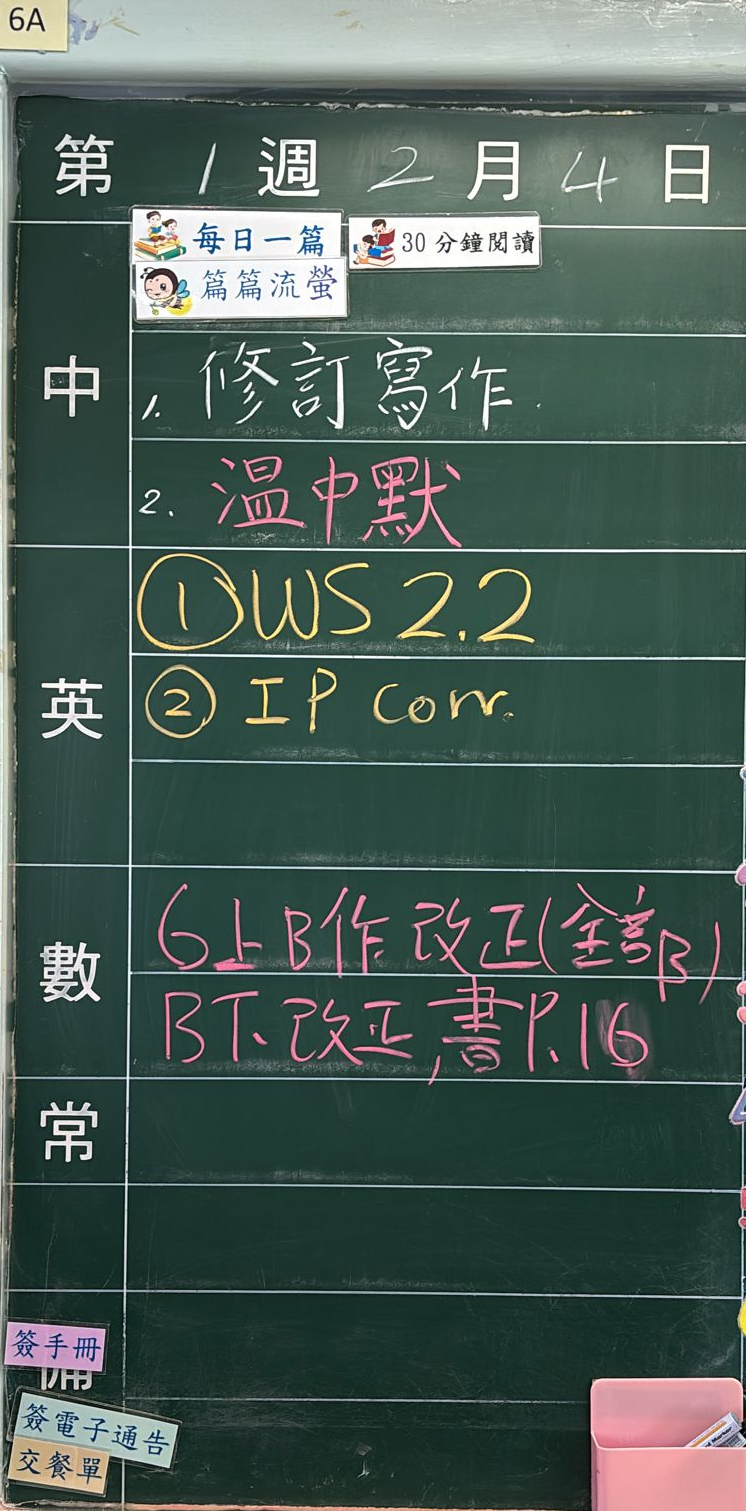 6A
第 1 週 2 月 4 日
每日一篇
30分鐘閱讀
篇篇流螢
中
1. 修訂寫作.
2. 溫中默
英
① WS 2.2
② IP corr.
數
6上B作改正(全部B)
B下改正,書P.16
常
簽手冊
備
簽電子通告
交餐單